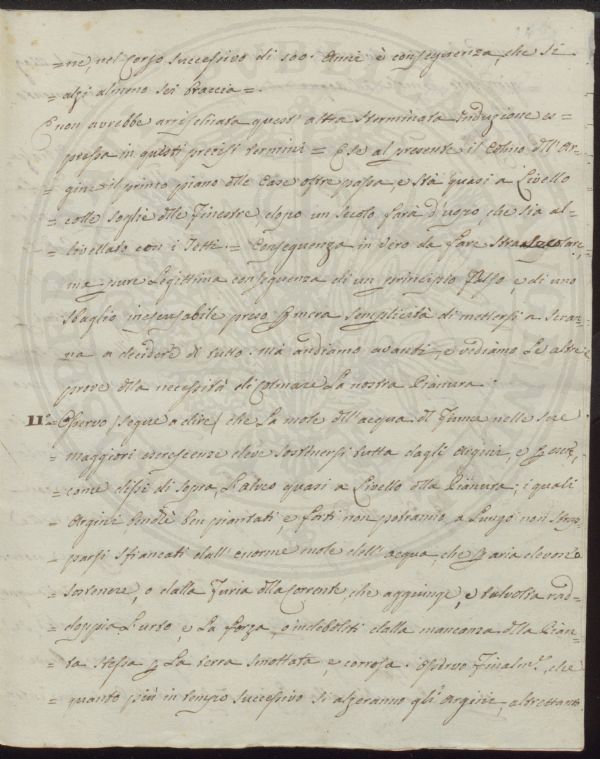 = ne, nel Corso successivo di 100. Anni è conseguenza, che si
= alzi almeno sei braccia =.
E non avrebbe arrischiata quest'altra sterminata induzione es=
pressa in questi precisi termini = E se al presente il Colmo dell'Ar=
= gine il primo piano delle Case oltre passa, e stà quasi a Livello
= colle soglie delle Finestre dopo un secolo sarà d'uopo, che sia al=
= livellato con i Tetti = Conseguenza in vero da fare strasecolare,
ma pure Legittima conseguenza di un principio falso, e di uno
sbaglio inescusabile preso p mera semplicità di mettersi a scran=
na a decidere di tutto. Ma andiamo avanti, e vediamo Le altre
prove della necessità di Colmare La nostra Pianura.
II.° = Osservo (segue a dire) che La mole dell'acqua del Fiume nelle sue
= maggiori escrescenze deve sostenersi tutta dagli Argini, e p
= come dissi di sopra, L'alveo quasi a Livello della Pianura; i quali
= Argini benchè ben piantati, e forti non potranno a Lungo non
= sfiancati dall'enorme mole dell'acqua, che p aria devono
= sostenere, o dalla Furia della Corrente, che aggiunge, e talvolta rad=
= doppia L'urto, e La forza, o indeboliti dalla mancanza della Pian=
= ta stessa p La terra smottata, e corrosa. Osservo Finalm.e, che
= quanto più in tempo successivo si alzeranno gli Argini, altrettanto